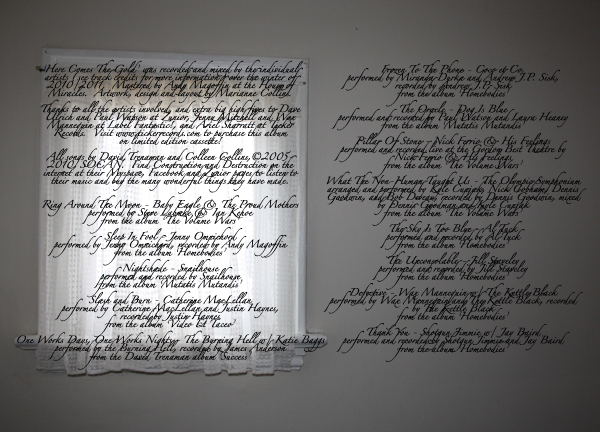 'Here Comes The Gold' was recorded and mixed by the individual
artists (see track credits for more information) over the winter of
2010/2011. Mastered by Andy Magoffin at the House of
Miracles. Artwork, design and layout by Marianne Collins.
Thanks to all the artists involved and extra big high fives to Dave
Ullrich and Paul Watson at Zunior, Jenny Mitchell and Wax
Mannequin at Label Fantastic!, and Ariel Sharratt at Ticker
Records. Visit www.tickerrecords.com to purchase this album
on limited edition cassette!
All songs by David Trenaman and Colleen Collins, ©2005-
2010 SOCAN. Find Construction and Destruction on the
internet at their Myspace, Facebook and Zunior pages to listen to
their music and buy the many wonderful things they have made.
Ring Around The Moon - Baby Eagle & The Proud Mothers
performed by Steve Lambke & Ian Kehoe
from the album 'The Volume Wars'
Sleep In Fool - Jenny Omnichord
performed by Jenny Omnichord, recorded by Andy Magoffin
from the album 'Homebodies'
Nightshade - Snailhouse
performed and recorded by Snailhouse
from the album 'Mutatis Mutandis'
Slash and Burn - Catherine MacLellan
performed by Catherine MacLellan and Justin Haynes,
recorded by Justin Haynes
from the album 'Video Et Taceo'
One Works Days, One Works Nights - The Burning Hell w/ Katie Baggs
performed by the Burning Hell, recorded by James Anderson
from the David Trenaman album 'Success'
Frozen To The Phone - Coco et Co.
performed by Miranda Durka and Andrew J.P. Sisk,
recorded by Andrew J.P. Sisk
from the album 'Homebodies'
The Oracle - Dog Is Blue
performed and recorded by Paul Watson and Laura Heaney
from the album 'Mutatis Mutandis'
Pillar Of Stone - Nick Ferrio & His Feelings
performed and recorded live at the Gordon Best Theatre by
Nick Ferrio & His Feelings
from the album 'The Volume Wars'
What The Non-Human Taught Us - The Olympic Symphonium
arranged and performed by Kyle Cunjak, Nick Cobham, Dennis
Goodwin, and Bob Deveau, recorded by Dennis Goodwin, mixed
by Dennis Goodwin and Kyle Cunjak
from the album 'The Volume Wars'
The Sky Is Too Blue - Al Tuck
performed and recorded by Al Tuck
from the album 'Homebodies'
The Uncontrollably - Jill Staveley
performed and recorded by Jill Staveley
from the album 'Homebodies'
Defective - Wax Mannequin w/ The Kettle Black
performed by Wax Mannequin and The Kettle Black, recorded
by The Kettle Black
from the album 'Homebodies'
Thank You - Shotgun Jimmie w/ Jay Baird
performed and recorded by Shotgun Jimmie and Jay Baird
from the album 'Homebodies'